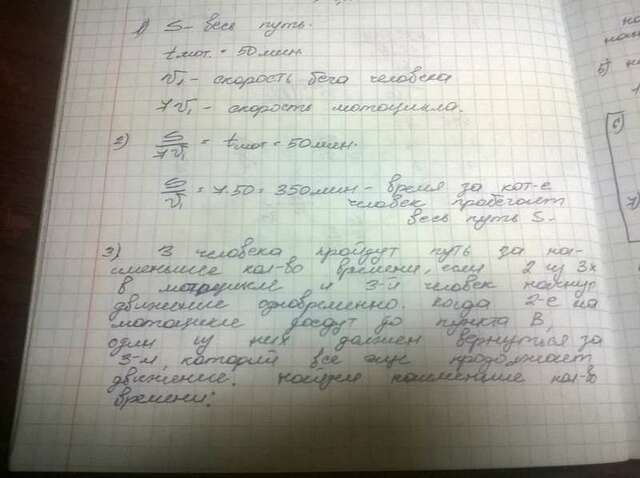 1) S - весь путь.
tмот = 50мин
V₁ - скорость бега человека
7V₁ - скорость мотоцикла.
2) S/7V₁ = tмот = 50мин.
S/V₁ = 7·50 = 350мин - время за кот-е
человек пробегает
весь путь S.
3) 3 человека пройдут путь за наи-
меньшее кол-во времени, если 2 из 3х
в мотоцикле и 3-й человек начнут
движение одновременно. Когда 2-е на
мотоцикле доедут до пункта В,
один из них должен вернуться за
3-м, который все еще продолжает
движение. найдем наименьшее кол-во
времени: